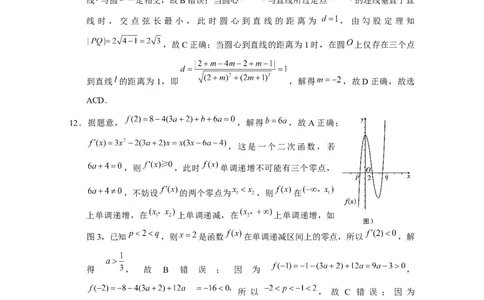 线l与圆O一定相交，故B错误；当圆心O与直线所过定点的连线垂直于直
线时，交点弦长最小，此时圆心到直线的距离为 d=1，由勾股定理知
|PQ|=2√4-1=2√3，故C正确；当圆心到直线的距离为1时，在圆O上仅存在三个点
到直线l的距离为1，即 d=|2+m-4m-2+m-1|/√(2+m)²+(2m+1)²=1，解得m=-2，故D正确，故选
ACD．
12．据题意，f(2)=8-4(3a+2)+b+6a=0，解得b=6a，故A正确；
f'(x)=3x²-2(3a+2)x=x(3x-6a-4)，这是一个二次函数，若
6a+4=0，则f'(x)≥0，此时f(x)单调递增不可能有三个零点，
6a+4≠0，不妨设f'(x)的两个零点为x₁<x₂，则f(x)在(-∞, x₁)
上单调递增，在(x₁, x₂)上单调递减，在(x₂, +∞)上单调递增，如
图3，已知p<2<q，则x=2是函数f(x)在单调递减区间上的零点，所以f'(2)<0，解
得a>1/3，故B错误；因为f(-1)=-1-(3a+2)+12a=9a-3>0，
f(-2)=-8-4(3a+2)+12a=-16<0，所以-2<p<-1，故C错误；因为
y
p
O
2
q
x
f(x)
图3